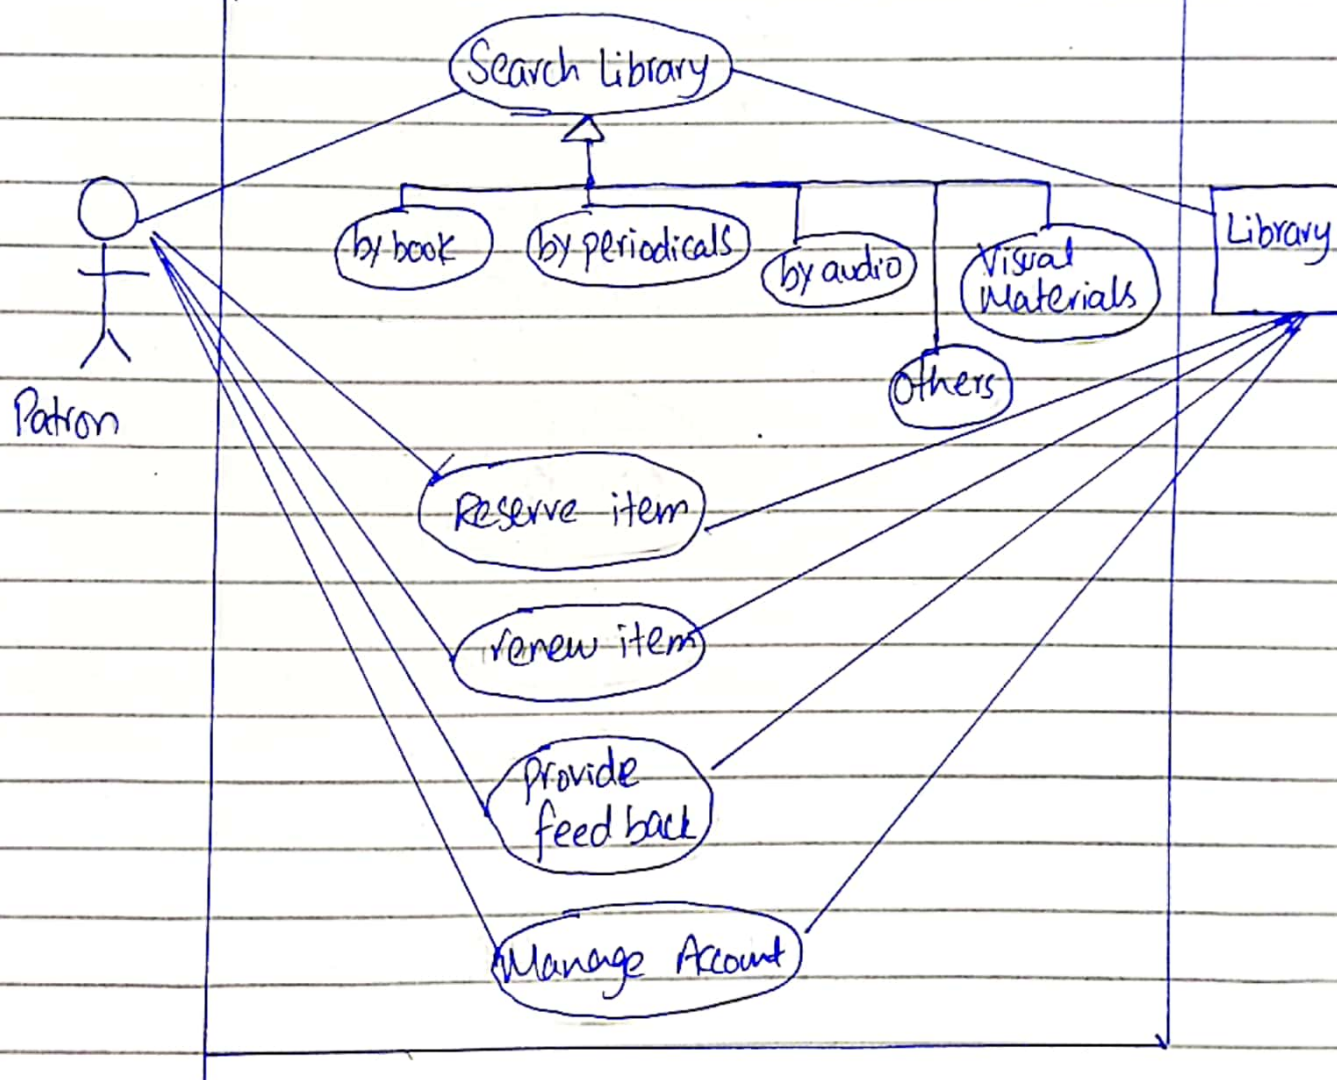 Search Library
Library
by book
by periodicals
by audio
Visual
Materials
Others
Patron
Reserve item
renew item
provide
feed back
Manage Account